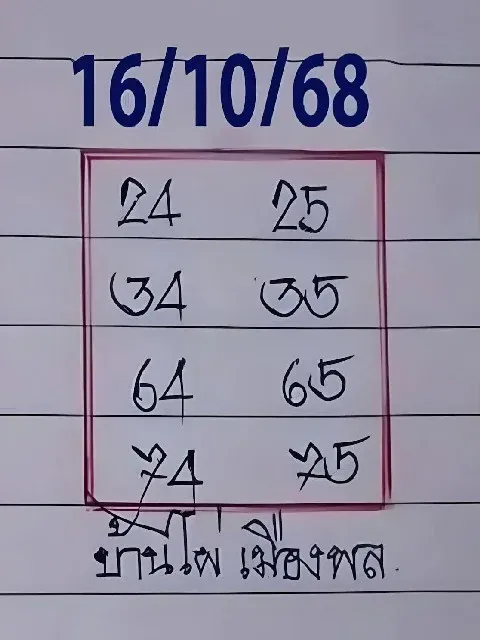 16/10/68
24 25
34 35
64 65
74 75
บ้านไผ่ เมืองพล.